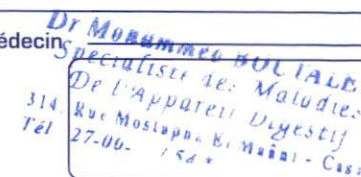 édecin
Dr Mohammed
Specialiste des Maladies
De L'Appareil Digestif
314 Rue Mostapha El Maani - Cas
Tél 27-00-